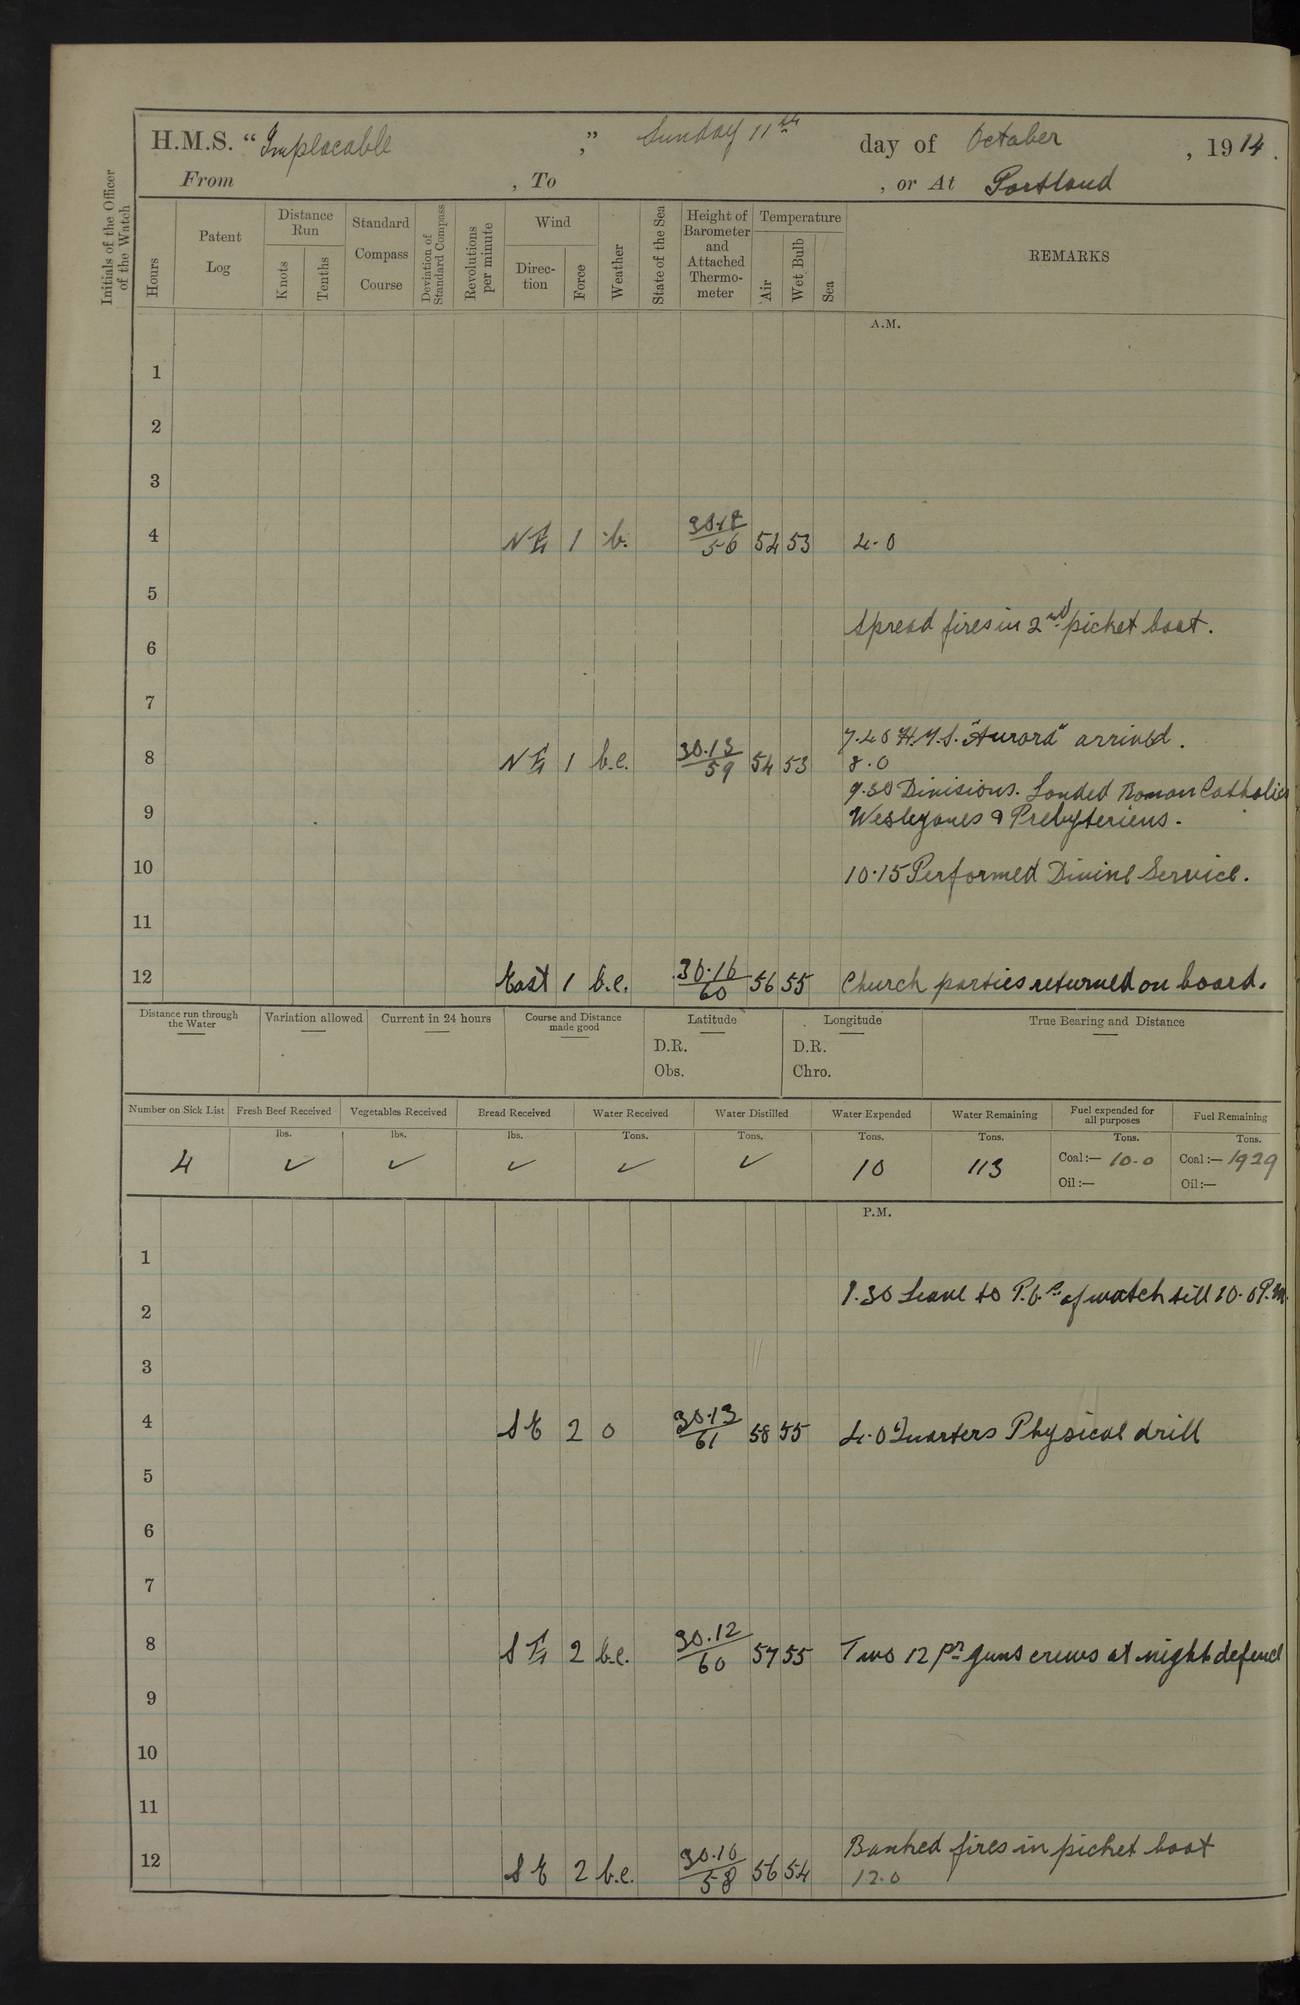 H.M.S. "Implacable ," Sunday 11th day of October , 1914.
From , To , or At Portland
Initials of the Officer of the Watch
Hours
Patent Log
Distance Run
Knots
Tenths
Standard Compass Course
Deviation of Standard Compass
Revolutions per minute
Wind
Direction
Force
Weather
State of the Sea
Height of Barometer and Attached Thermometer
Temperature
Air
Wet Bulb
Sea
REMARKS
A.M.
1
2
3
4 NE 1 b. 56 54 53 4.0
5
Spread fires in 2nd picket boat.
6
7
7.40 H.M.S. "Aurora" arrived.
8 NE 1 b.c. 30.13/59 54 53 8.0
9.30 Divisions. Landed Roman Catholics
9 Wesleyans & Presbyterians.
10 10.15 Performed Divine Service.
11
12 East 1 b.c. 30.16/60 56 55 Church parties returned on board.
Distance run through the Water Variation allowed Current in 24 hours Course and Distance made good Latitude Longitude True Bearing and Distance
D.R. D.R.
Obs. Chro.
Number on Sick List Fresh Beef Received Vegetables Received Bread Received Water Received Water Distilled Water Expended Water Remaining Fuel expended for all purposes Fuel Remaining
lbs. lbs. lbs. Tons. Tons. Tons. Tons. Tons. Tons.
4 ✓ ✓ ✓ ✓ ✓ 10 113 Coal:— 10.0 Coal:— 1929
Oil:— Oil:—
P.M.
1
1.30 Leave to of watch till 10.0 P.M.
2
3
4 SE 2 o 30.13/61 58 55 4.0 Quarters Physical drill
5
6
7
8 SE 2 b.c. 30.12/60 57 55 Two 12 pr guns crews at night defence
9
10
11
Banked fires in picket boat
12 SE 2 b.c. 30.10/58 56 54 12.0